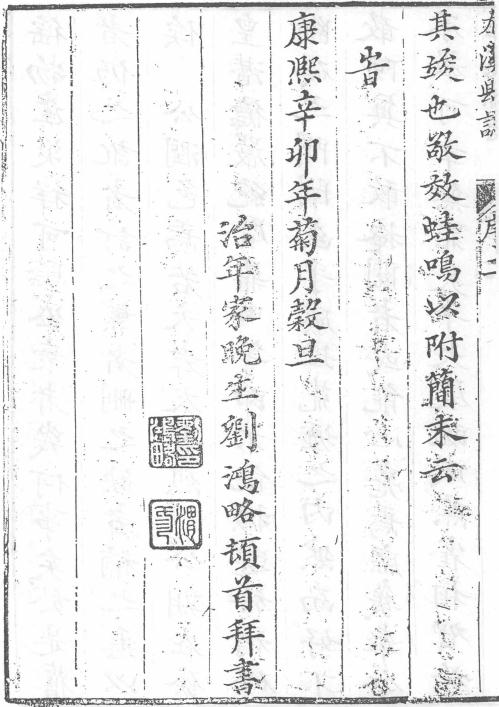 其遂也敬效蛙鳴以附簡末云
旹
康熙辛卯年菊月穀旦
治年家晚生劉鴻略頓首拜書